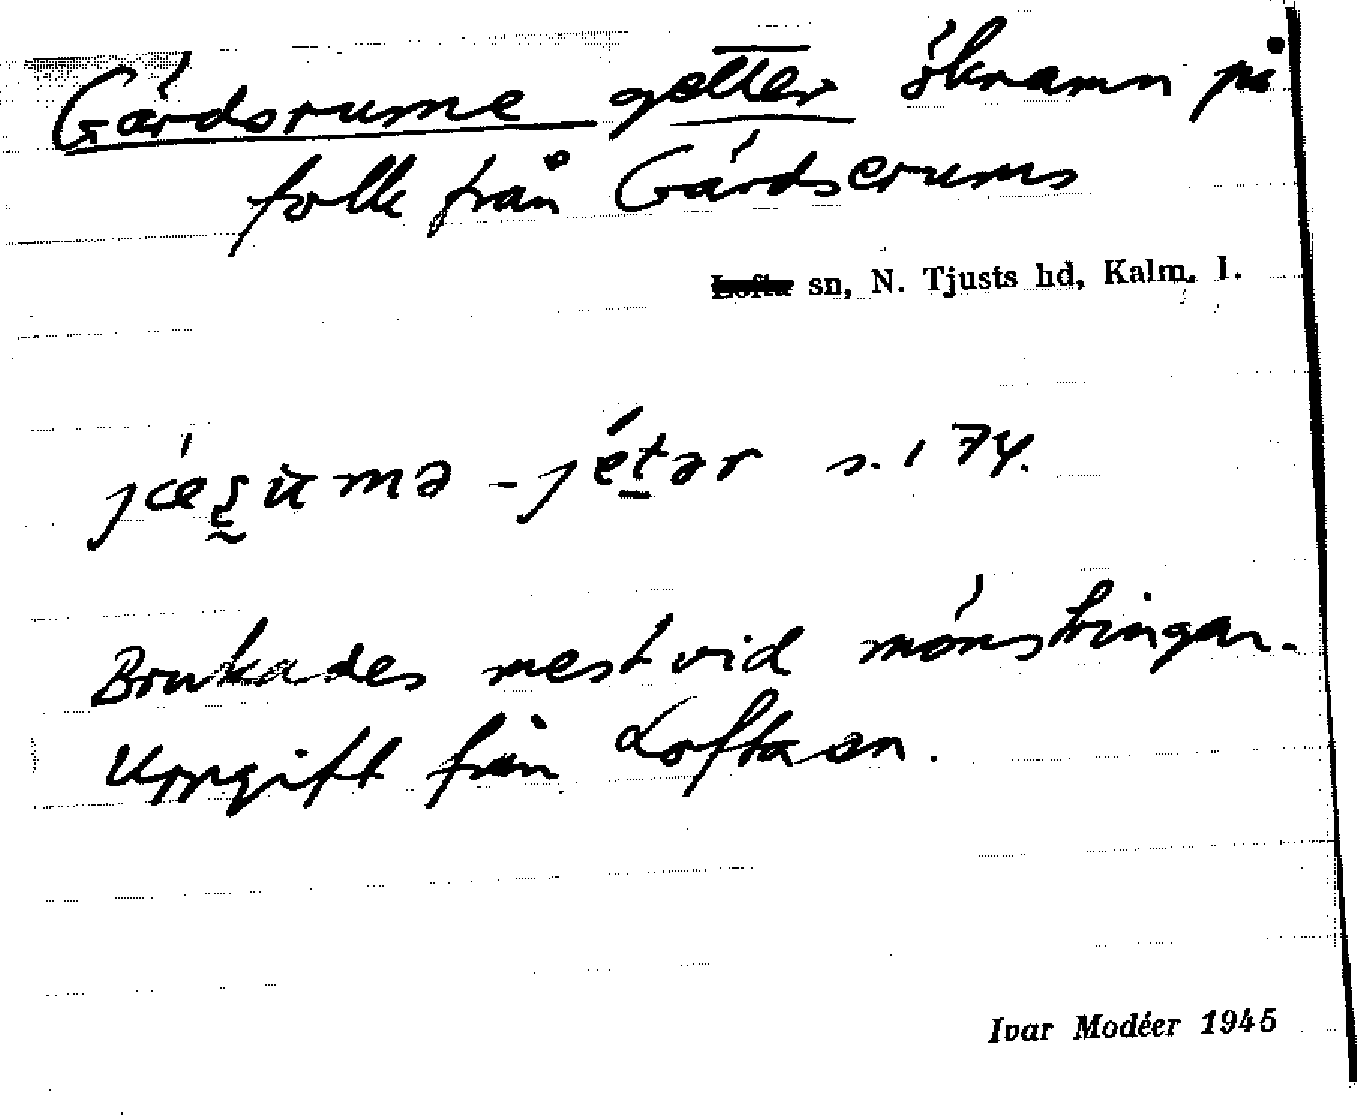 Gärdsrume getter öknamn på
folk från Gärdserums
Lofta sn, N. Tjusts hd, Kalm. l.
s. 174.
Brukades mest vid mönstringar.
Uppgift från Lofta sn.
Ivar Modéer 1945